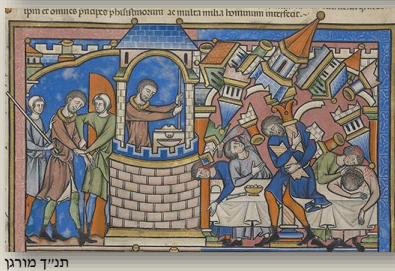 ipm et omnes principes philistinorum ac multa milia hominum interfecit.
תנ״ך מורגן